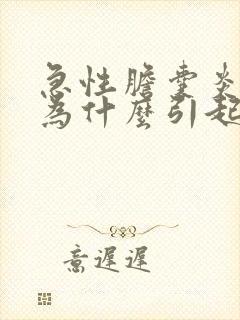 急性膽囊炎
為什麼引起
意遲遲